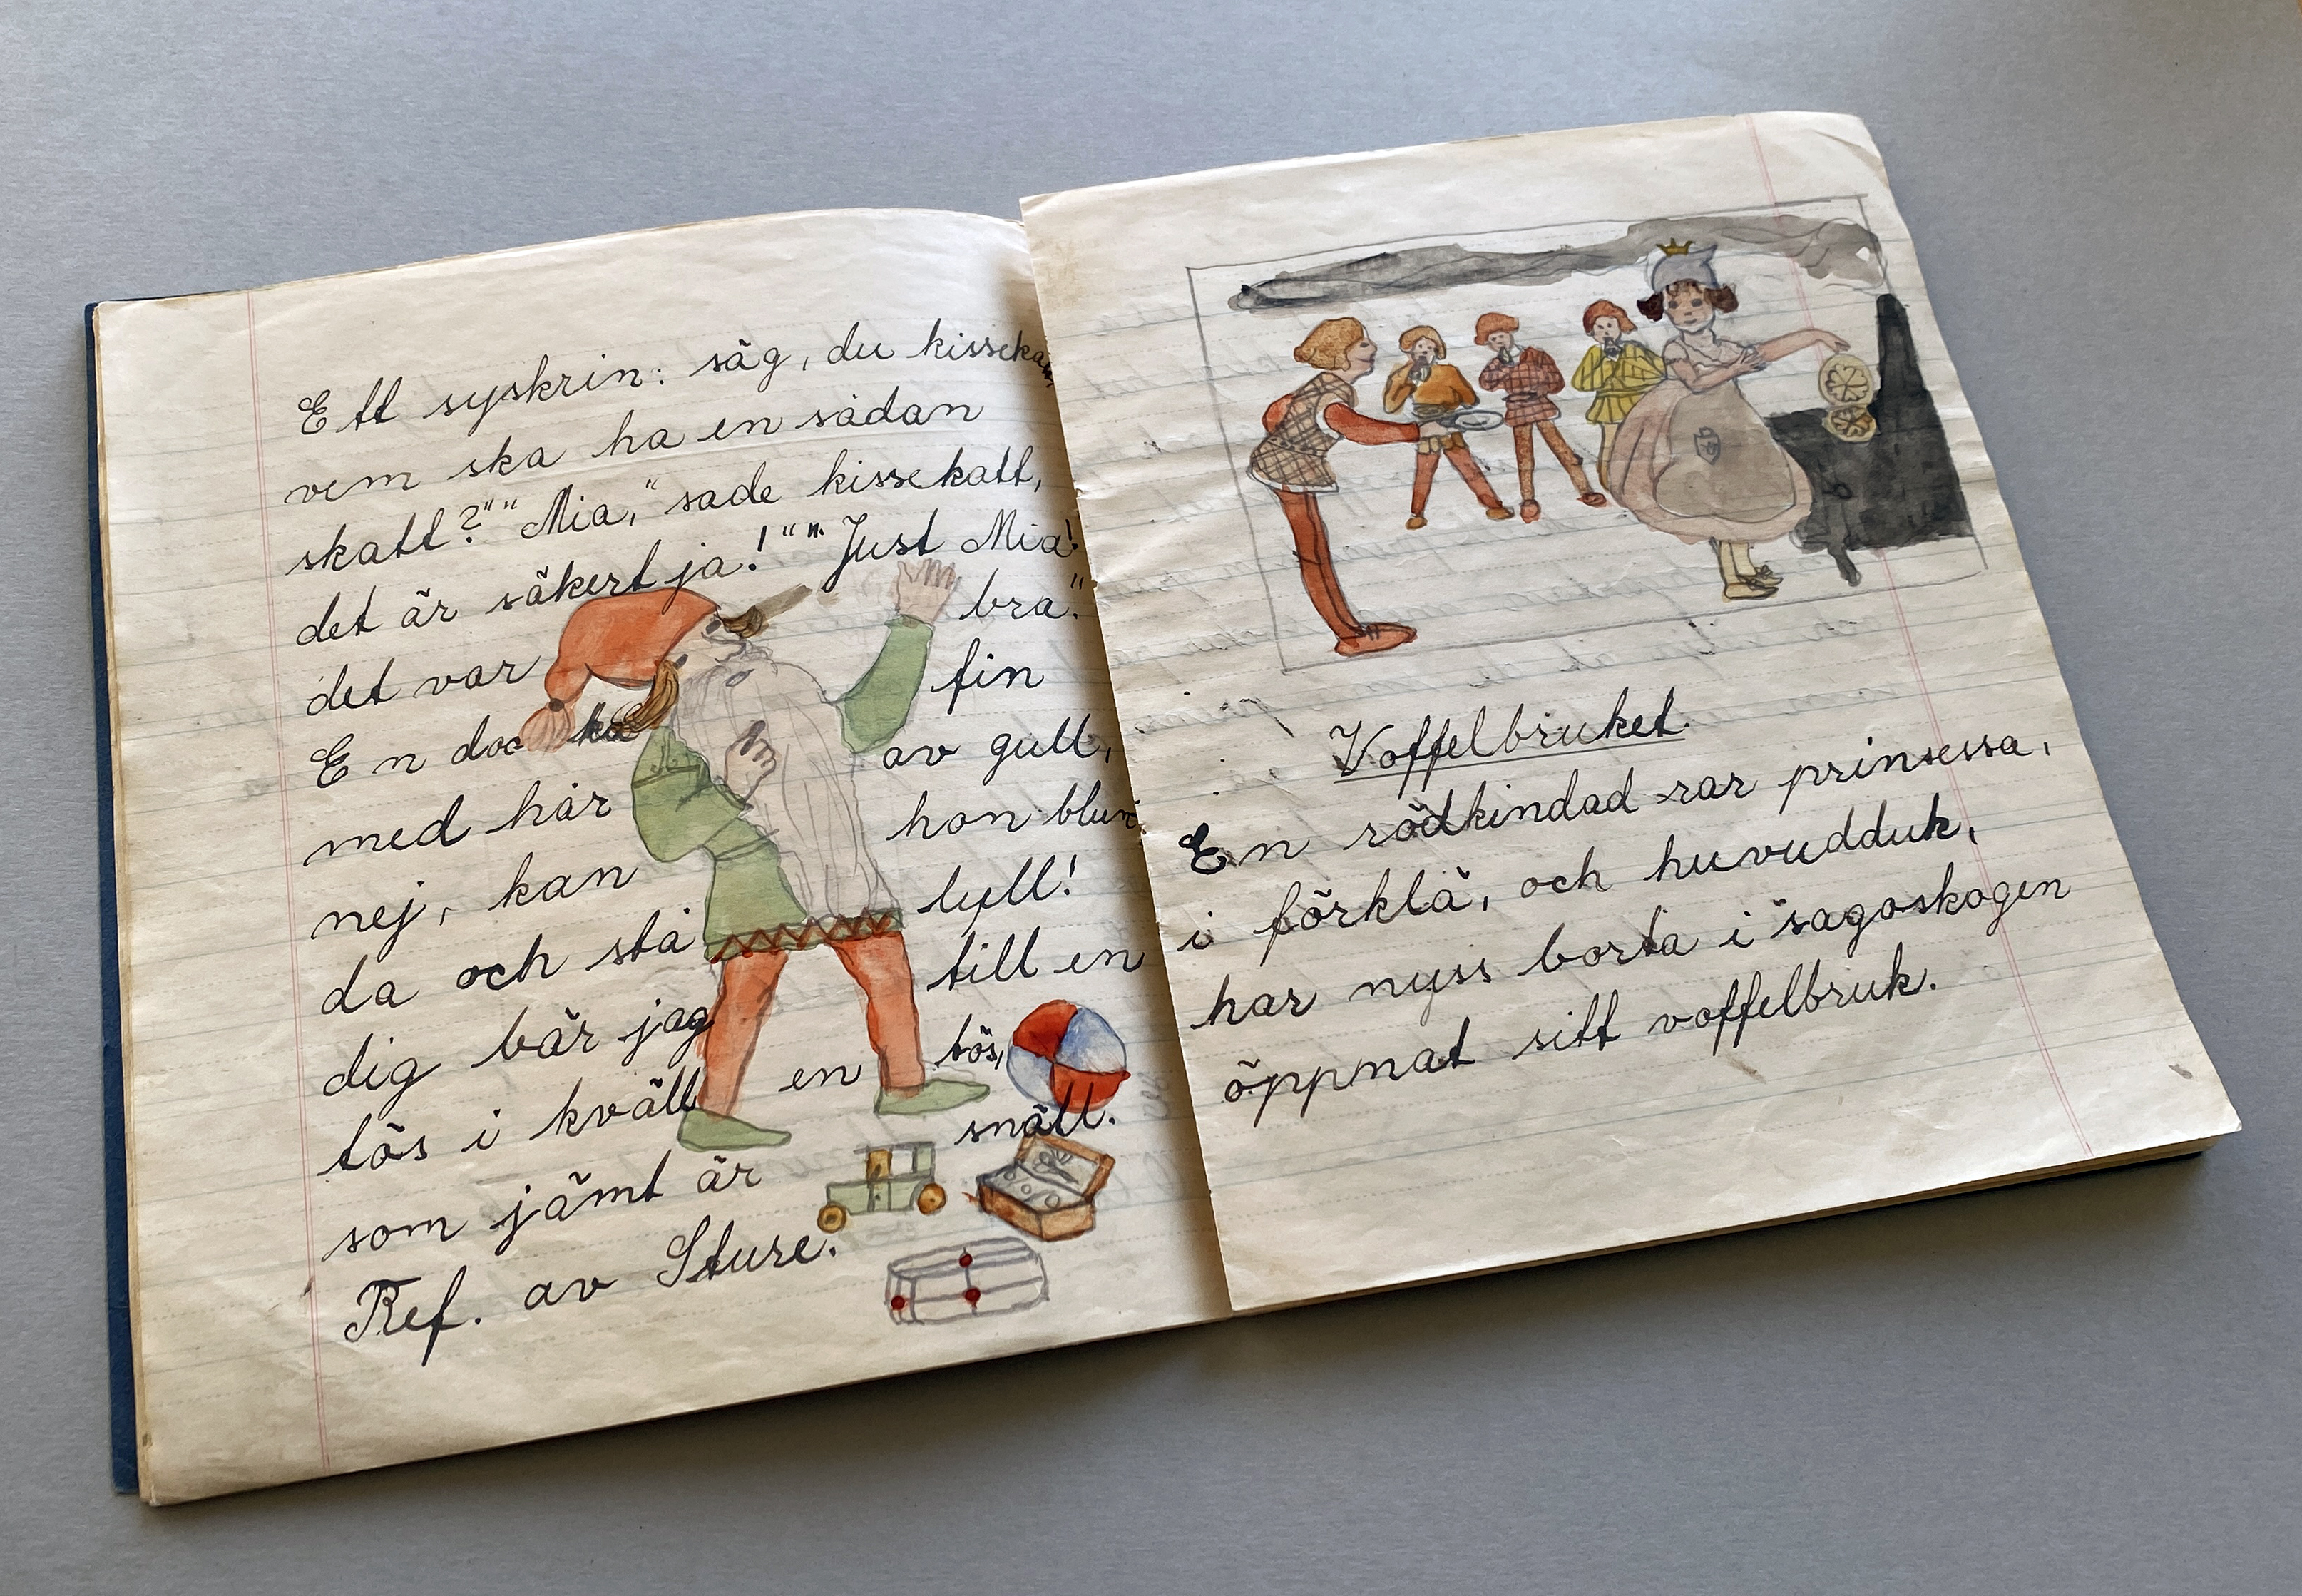 Ett syskrin: säg, du kissekatt,
vem ska ha en sådan
skatt?" "Mia," sade kissekatt,
det är säkert ja!" "Just Mia!
det var bra."
En docka fin
med hår av gull,
nej, kan hon blun-
da och stå lyll!
dig bär jag till en
tös i kväll en tös,
som jämt är snäll.
Ref. av Sture.
Voffelbruket.
En rödkindad rar prinsessa,
i förklä, och huvudduk,
har nyss borta i sagoskogen
öppnat sitt voffelbruk.